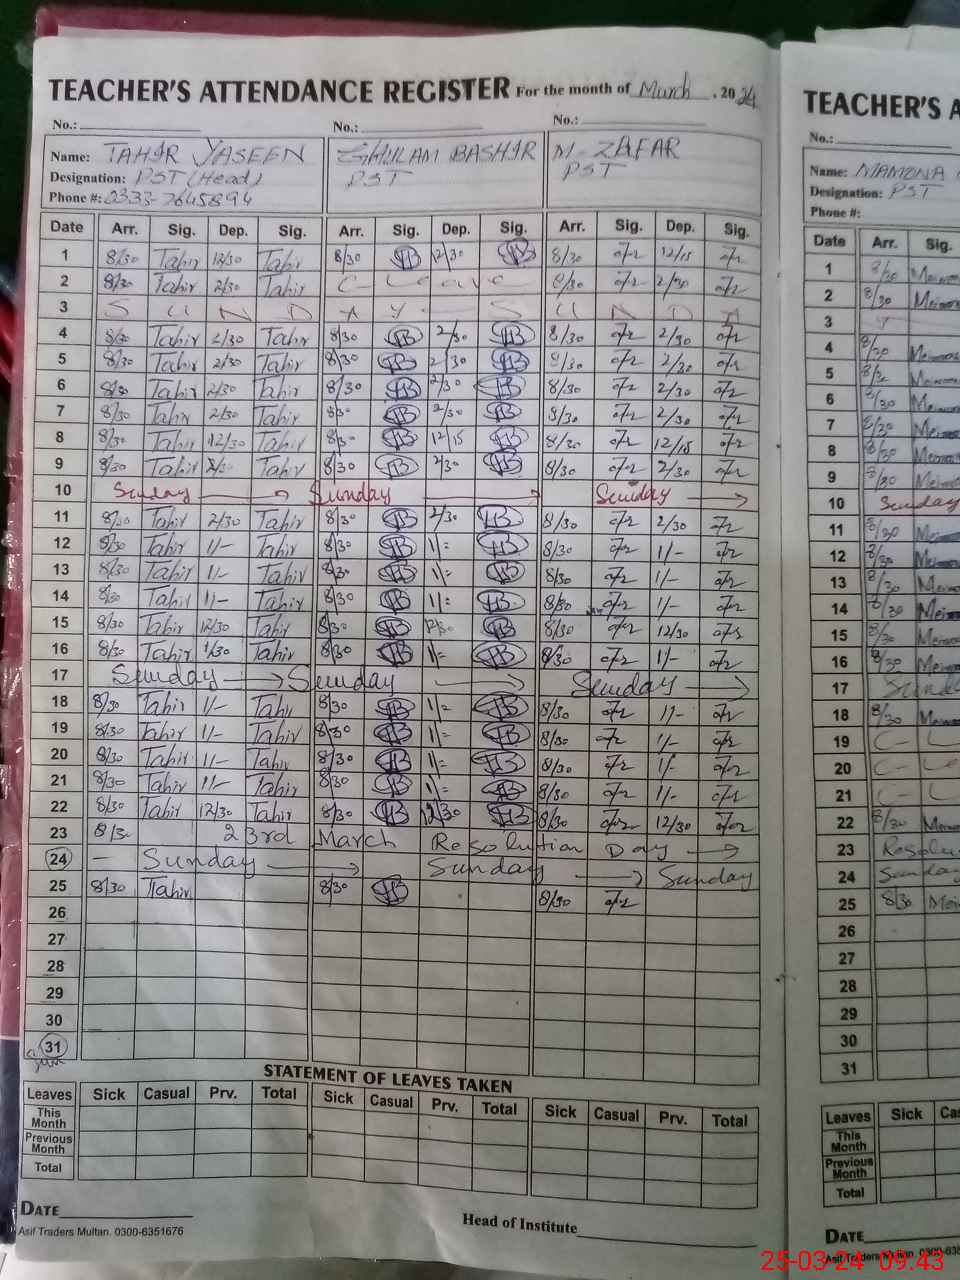 TEACHER'S ATTENDANCE REGISTER For the month of March, 2024
No.: No.: No.:
Name: TAHIR YASEEN GHULAM BASHIR M. ZAFAR
Designation: PST (Head) PST PST
Phone #: 0333-7645894
Date Arr. Sig. Dep. Sig. Arr. Sig. Dep. Sig. Arr. Sig. Dep. Sig.
1 8/30 Tahir 12/30 Tahir 8/30 12/30 8/30 12/15
2 8/30 Tahir 2/30 Tahir C- Leave 8/30 2/30
3 S U N D A Y - S U N D A
4 8/30 Tahir 2/30 Tahir 8/30 2/30 8/30 2/30
5 8/30 Tahir 2/30 Tahir 8/30 2/30 8/30 2/30
6 8/30 Tahir 2/30 Tahir 8/30 2/30 8/30 2/30
7 8/30 Tahir 2/30 Tahir 8/30 2/30 8/30 2/30
8 8/30 Tahir 12/30 Tahir 8/30 12/15 8/30 12/15
9 8/30 Tahir Tahir 8/30 2/30 8/30 2/30
10 Sunday Sunday Sunday
11 8/30 Tahir 2/30 Tahir 8/30 2/30 8/30 2/30
12 8/30 Tahir 1/- Tahir 8/30 1/= 8/30 1/-
13 8/30 Tahir 1/- Tahir 8/30 1/= 8/30 1/-
14 8/30 Tahir 1/- Tahir 8/30 1/= 8/30 1/-
15 8/30 Tahir 12/30 Tahir 8/30 12/30 8/30 12/30
16 8/30 Tahir 1/30 Tahir 8/30 1/= 8/30 1/-
17 Sunday Sunday Sunday
18 8/30 Tahir 1/- Tahir 8/30 1/= 8/30 1/-
19 8/30 Tahir 1/- Tahir 8/30 1/= 8/30 1/-
20 8/30 Tahir 1/- Tahir 8/30 1/= 8/30 1/-
21 8/30 Tahir 1/- Tahir 8/30 1/= 8/30 1/-
22 8/30 Tahir 12/30 Tahir 8/30 12/30 8/30 12/30
23 8/30 23rd March Resolution Day
24 - Sunday Sunday Sunday
25 8/30 Tahir 8/30 8/30
26
27
28
29
30
31
Sun
STATEMENT OF LEAVES TAKEN
Leaves Sick Casual Prv. Total Sick Casual Prv. Total Sick Casual Prv. Total
This Month
Previous Month
Total
DATE
Head of Institute
Asif Traders Multan. 0300-6351676
TEACHER'S A
No.:
Name: MAMONA
Designation: PST
Phone #:
Date Arr. Sig.
1 8/30
2 8/30
3
4 8/30
5 8/30
6 8/30
7 8/30
8 8/30
9 8/30
10 Sunday
11 8/30
12 8/30
13 8/30
14 8/30
15 8/30
16 8/30
17 Sunda
18 8/30
19 C- L
20 C- Le
21 C- L
22 8/30
23 Resolu
24 Sunday
25 8/30
26
27
28
29
30
31
Leaves Sick Cas
This Month
Previous Month
Total
DATE
Asif Traders Multan. 0300-635
25-03-24 09:43